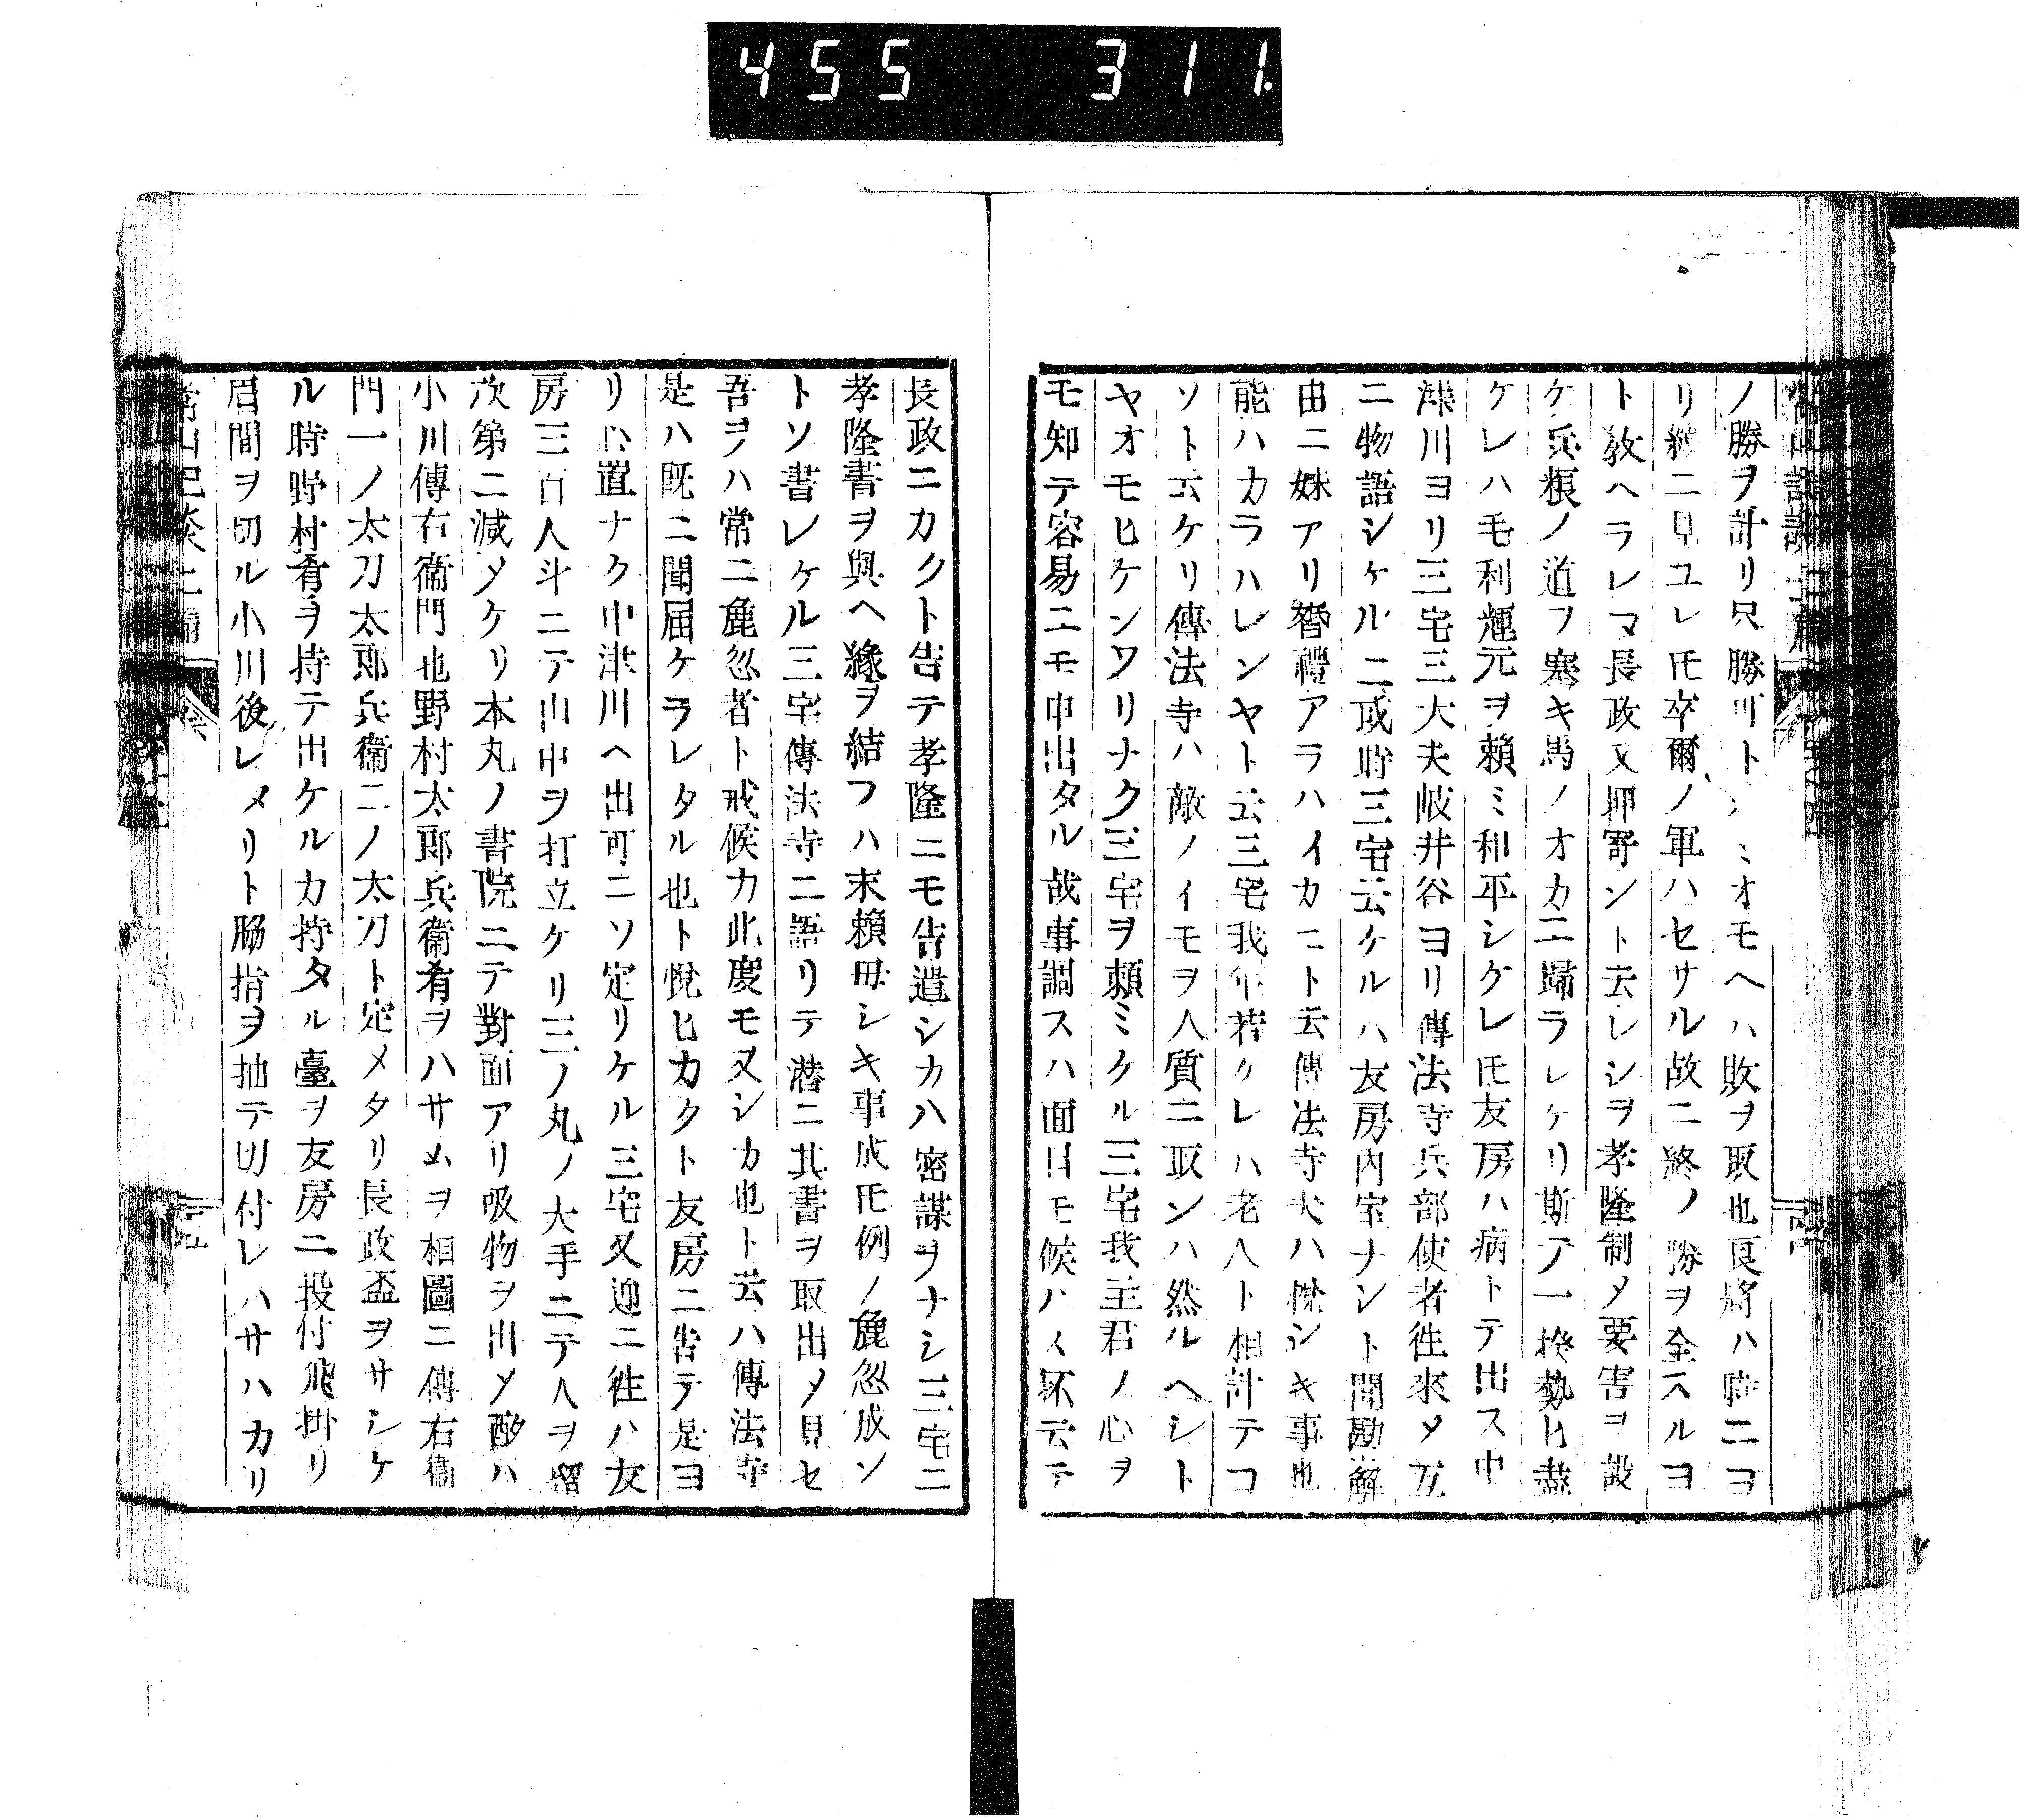 455 311.
ノ勝ヲ計リ只勝川トノミオモヘハ敗ヲ取也良將ハ時ニヨ
リ緩ニ見ユレ𪜈卒爾ノ軍ハセサル故ニ終ノ勝ヲ全スルヨ
ト敎ヘラレマ長政又押寄ント云レシヲ孝隆制メ要害ヲ設
ケ兵粮ノ道ヲ塞キ馬ノオカニ歸ラレケリ斯テ一揆勢ヒ盡
ケレハ毛利輝元ヲ賴ミ和平シケレ𪜈友房ハ病トテ出ス中
津川ヨリ三宅三大夫岐井谷ヨリ傳法寺兵部使者徃來メ互
ニ物語シケルニ或時三宅云ケルハ友房内室ナント聞勘解
由ニ妹アリ聟禮アラハイカニト云傳法寺夫ハ悅シキ事也
能ハカラハレンヤト云三宅我年若ケレハ老人ト相計テコ
ソト云ケリ傳法寺ハ敵ノイモヲ人質ニ取ンハ然ルヘシト
ヤオモヒケンワリナク三宅ヲ賴ミケル三宅我主君ノ心ヲ
モ知テ容易ニモ申出タル哉事調スハ面目モ候ハス抔云テ
長政ニカクト告テ孝隆ニモ告遣シカハ密謀ヲナシ三宅ニ
孝隆書ヲ與ヘ緣ヲ結フハ末賴母シキ事成𪜈例ノ麁忽成ン
トソ書レケル三宅傳法寺ニ語リテ潜ニ其書ヲ取出メ見セ
吾ヲハ常ニ麁忽者ト戒候カ此度モ又シカ也ト云ハ傳法寺
是ハ既ニ聞届ケラレタル也ト悅ヒカクト友房ニ告テ是ヨ
リ心置ナク中津川ヘ出可ニソ定リケル三宅又迎ニ徃ハ友
房三百人斗ニテ山中ヲ打立ケリ三ノ丸ノ大手ニテ人ヲ留
次第ニ減メケリ本丸ノ書院ニテ對面アリ吸物ヲ出メ酌ハ
小川傳右衞門也野村太郎兵衞肴ヲハサムヲ相圖ニ傳右衞
門一ノ太刀太郎兵衞二ノ太刀ト定メタリ長政盃ヲサシケ
ル時野村肴ヲ持テ出ケルカ持タル臺ヲ友房ニ投付飛掛リ
眉間ヲ切ル小川後レメリト脇指ヲ抽テ切付レハサハカリ